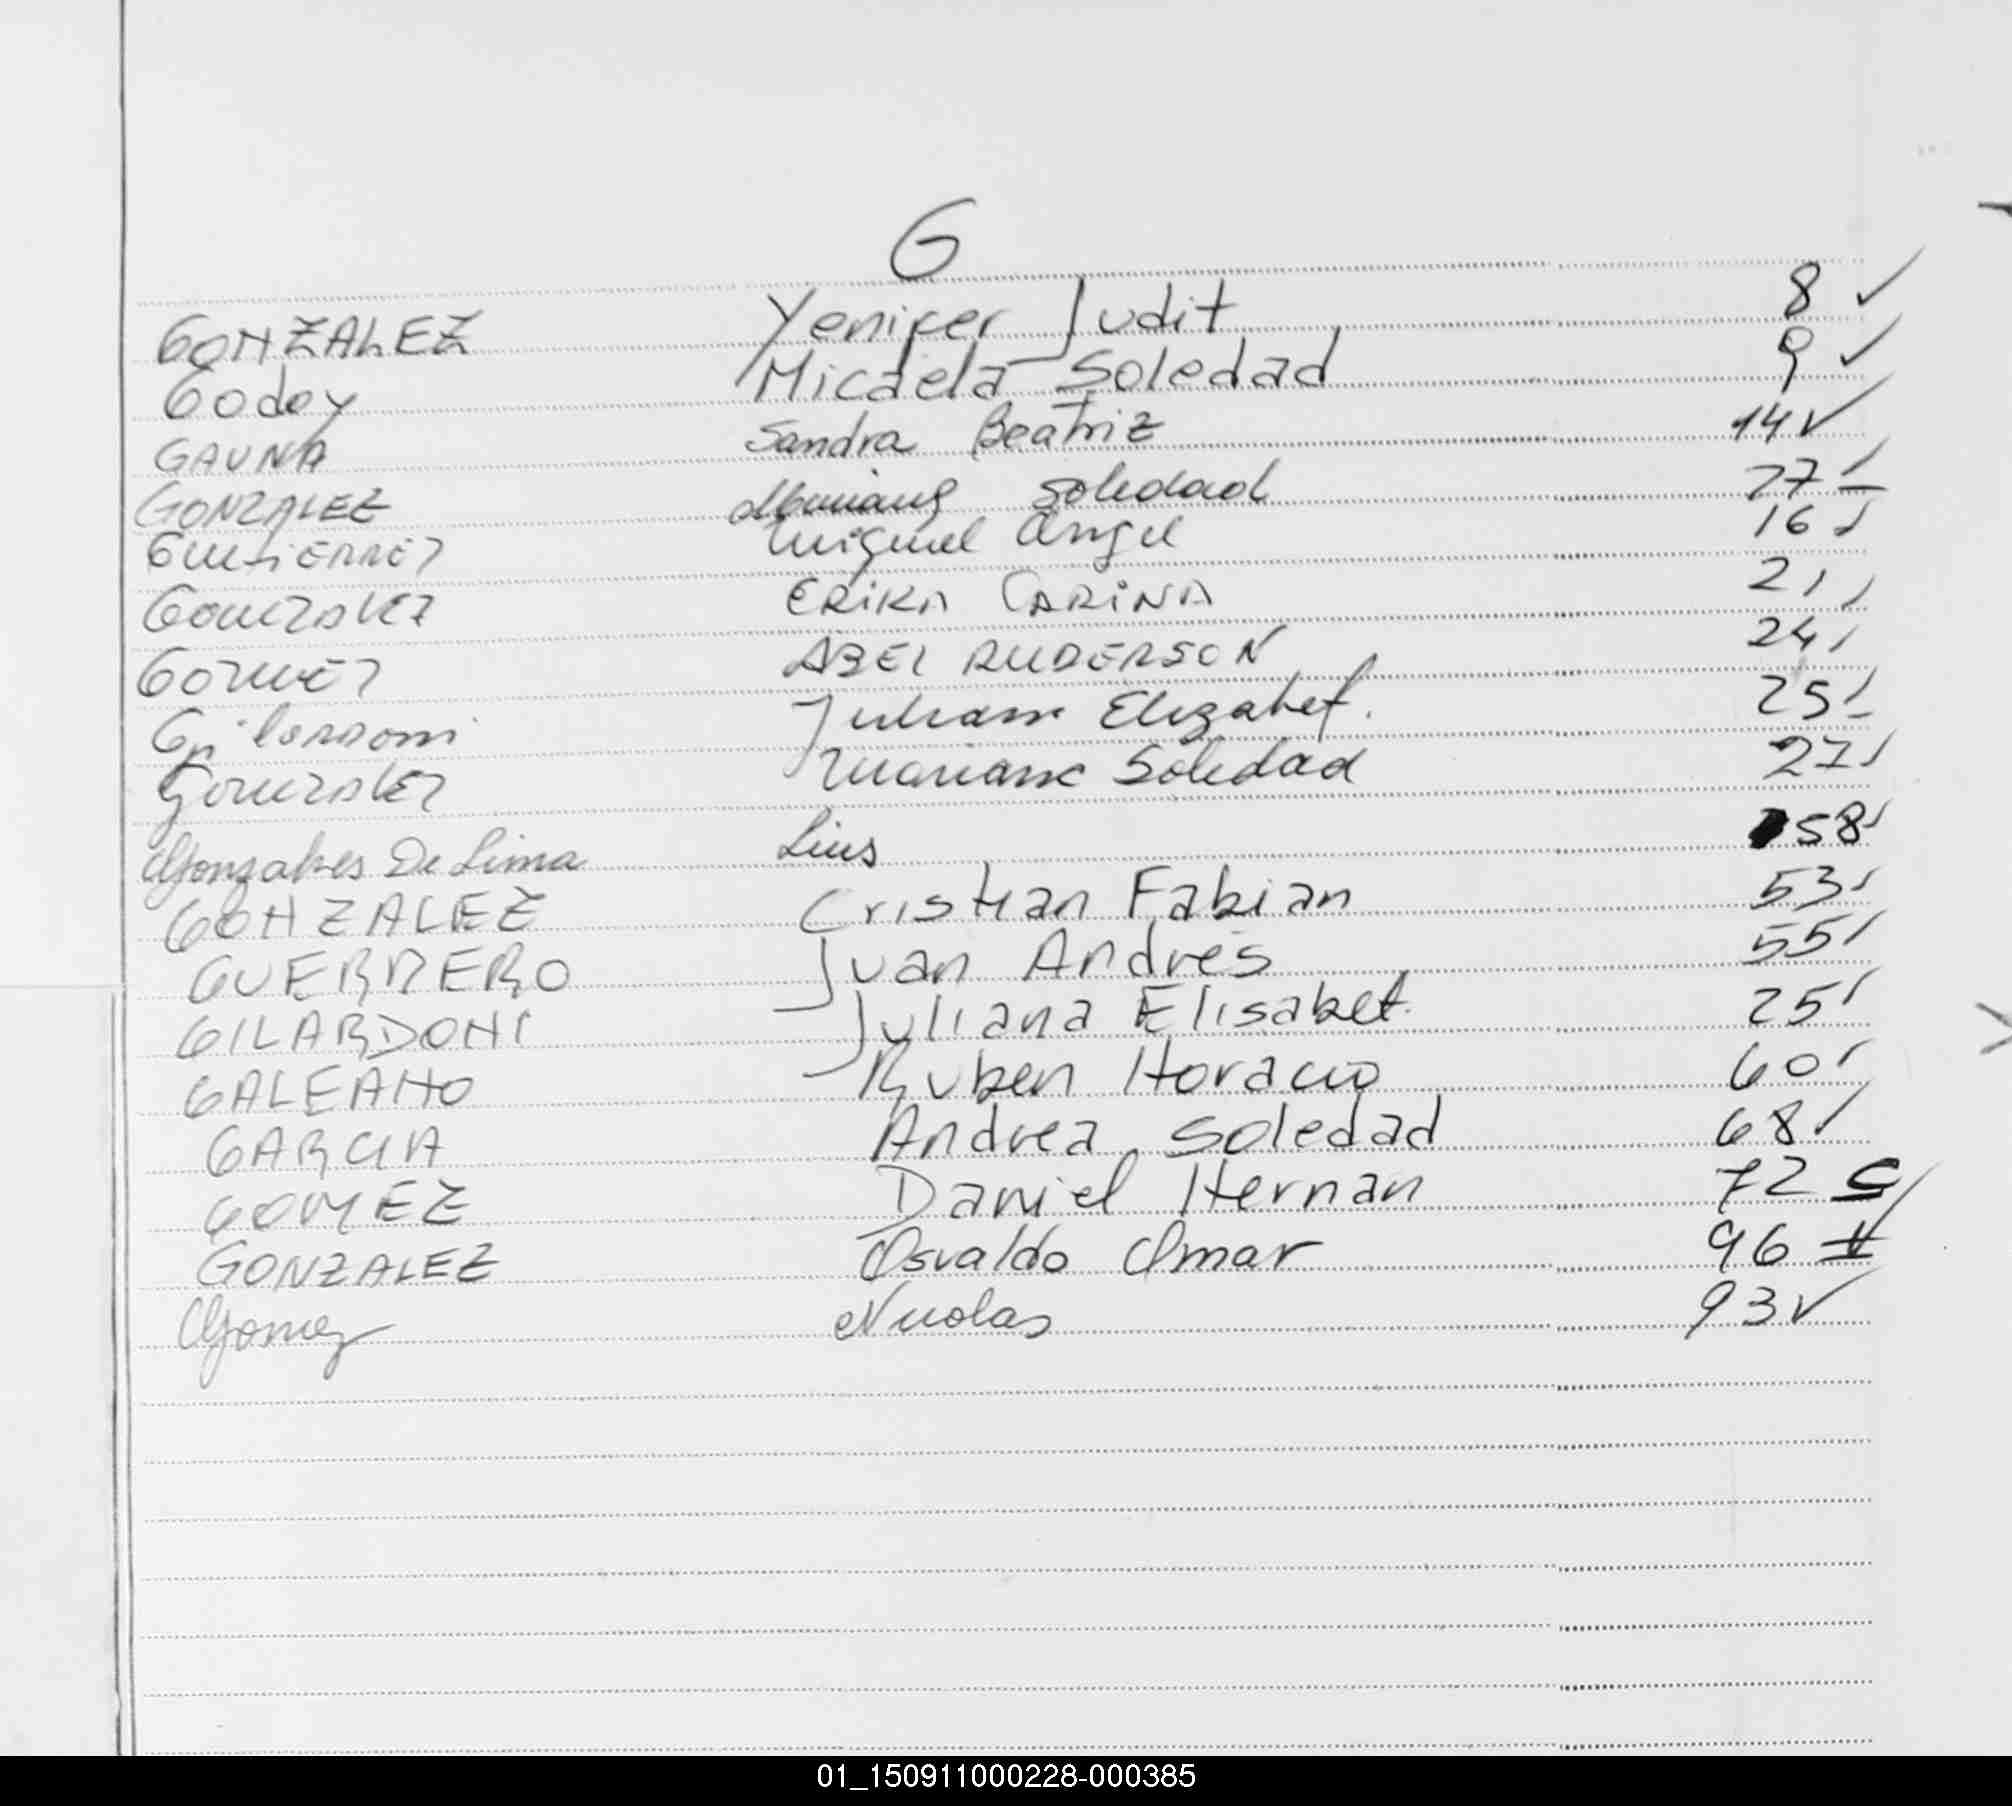 G
GONZALEZ Yenifer Judit 8 ✓
Godoy Micaela Soledad 9 ✓
GAUNA Sandra Beatriz 14 ✓
GONZALEZ Mariana Soledad 77
GUTIERREZ Miguel Angel 16
GONZALEZ ERIKA CARINA 21
GOMEZ ABEL ANDERSON 24
Gilardoni Juliana Elizabet. 25
Gonzalez Mariana Soledad 27
Gonzales De Lima Luis 58
GONZALEZ Cristian Fabian 53
GUERRERO Juan Andres 55
GILARDONI Juliana Elisabet. 25
GALEANO Ruben Horacio 60
GARCIA Andrea Soledad 68
GOMEZ Daniel Hernan 72
GONZALEZ Osvaldo Omar 96
Gomez Nicolas 93 ✓
01_150911000228-000385